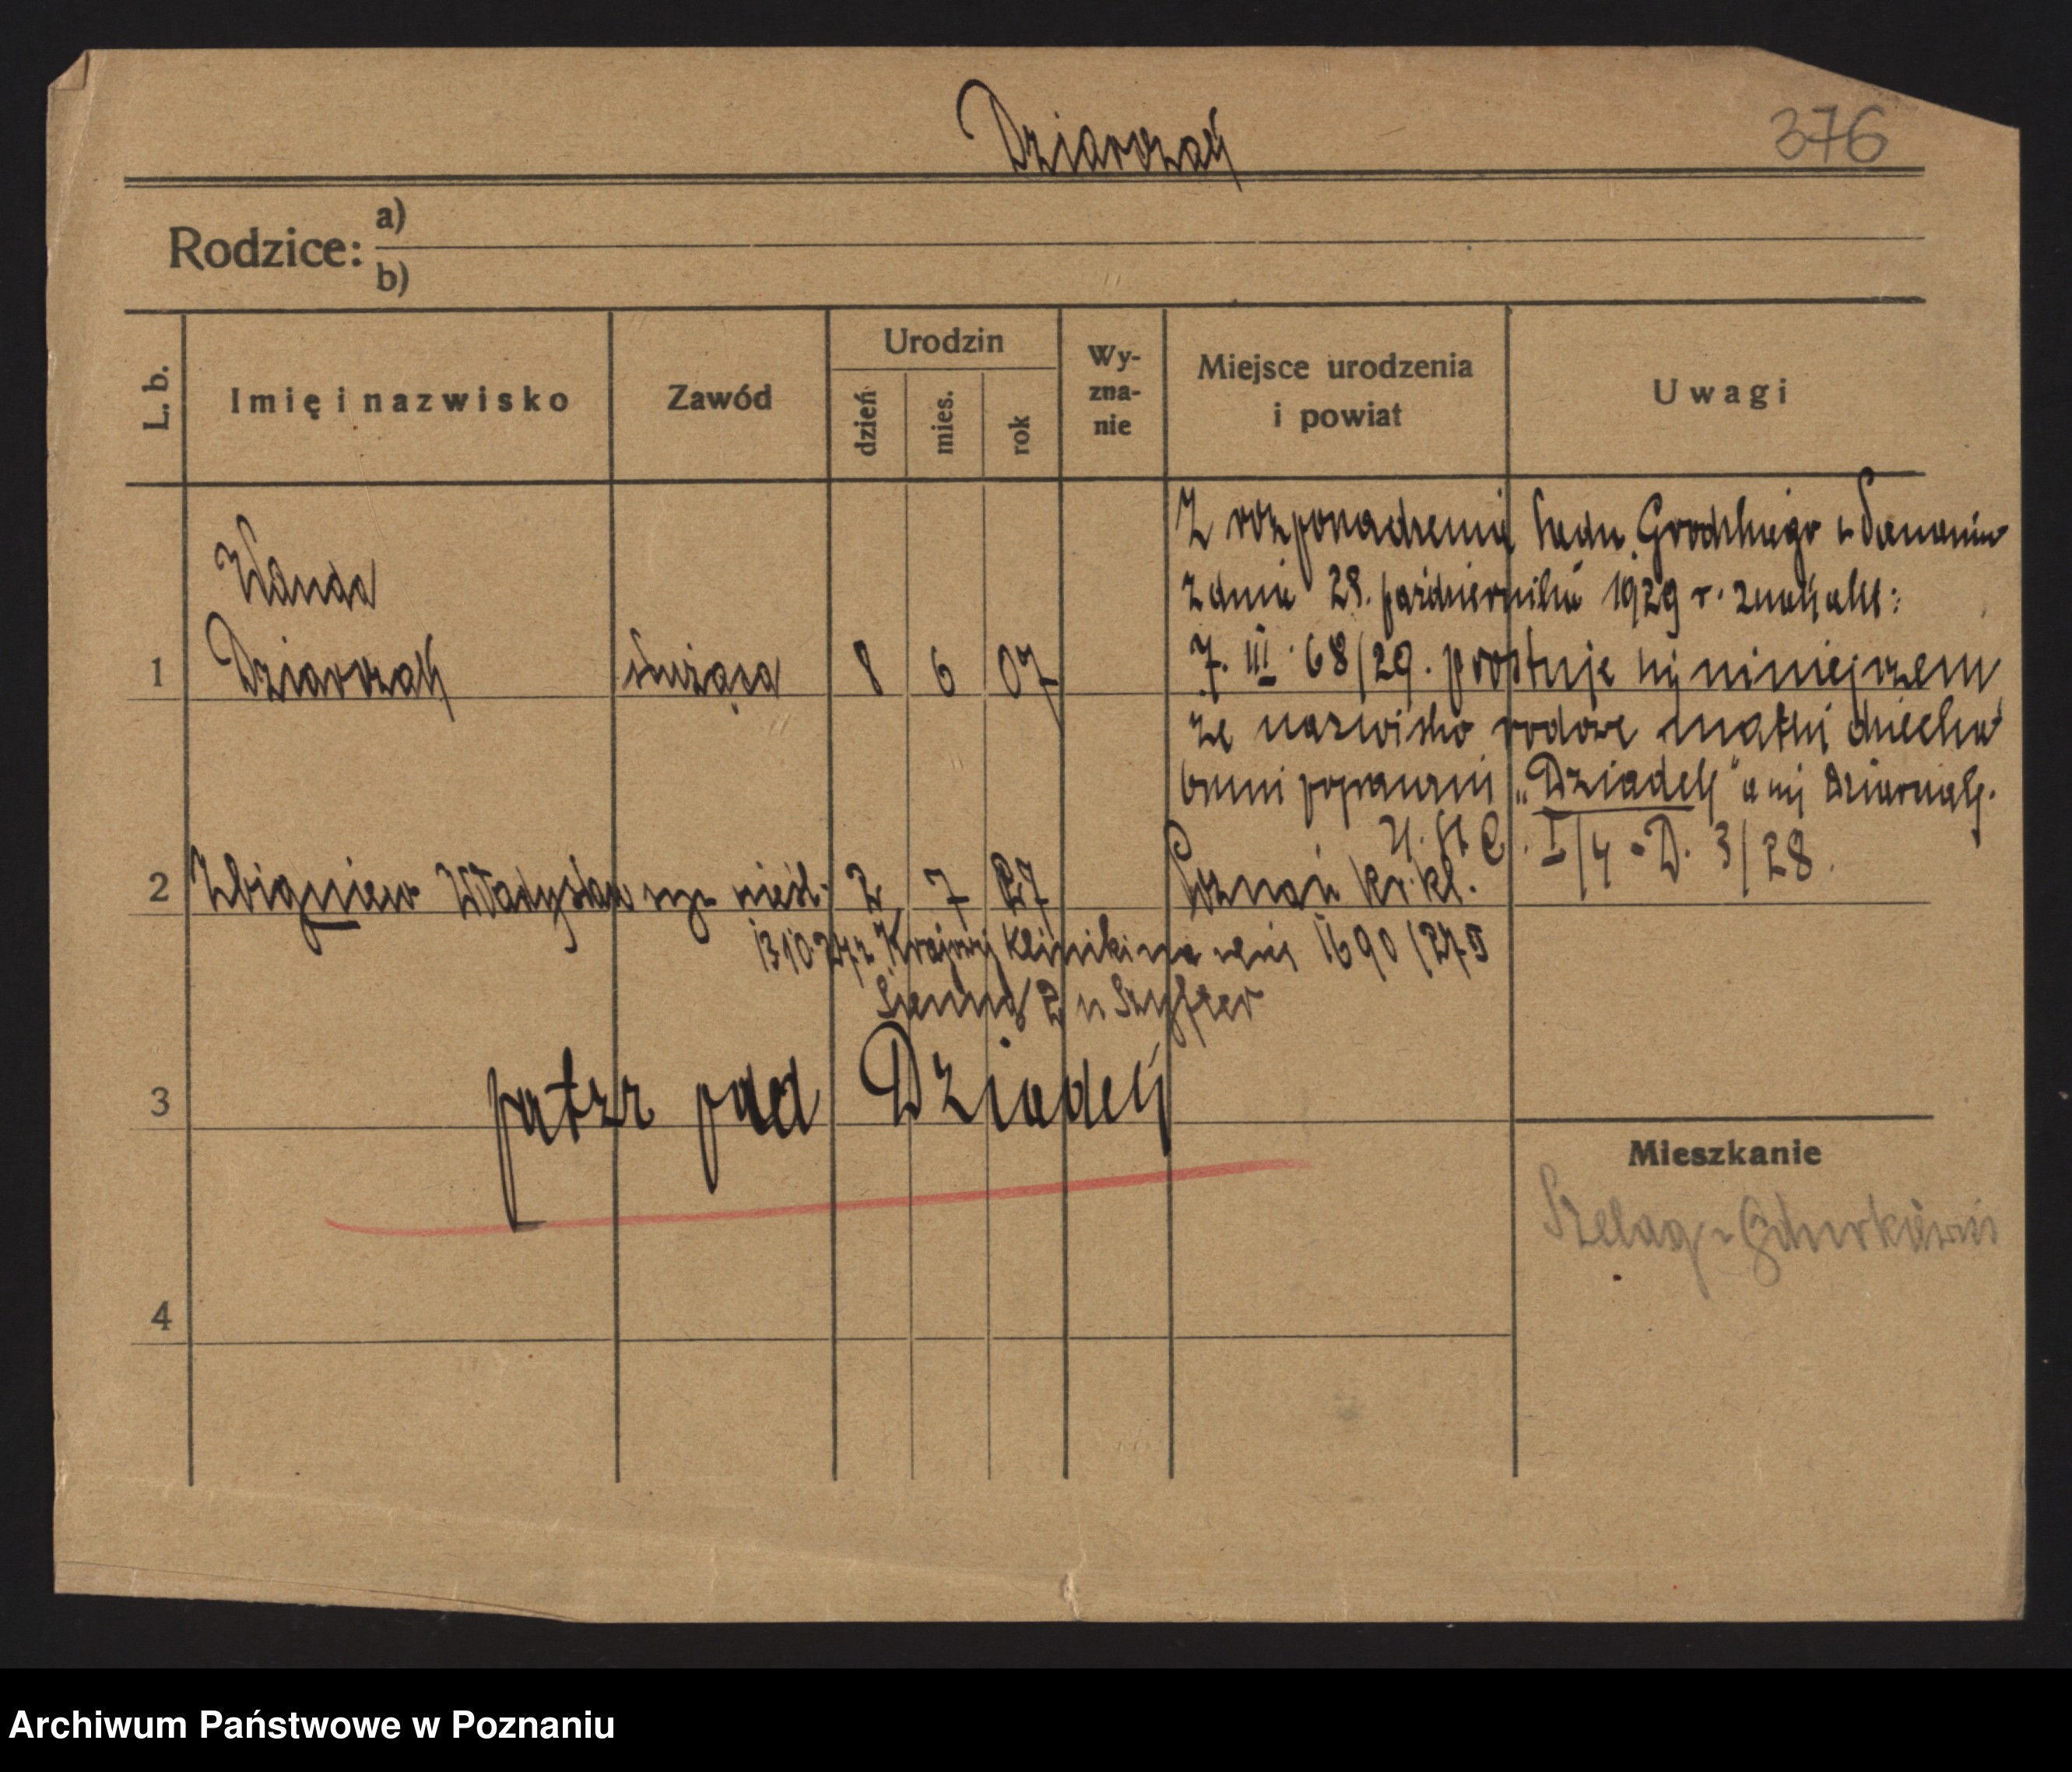 Dziarczak
376
Rodzice: a)
b)
L. b.
Imię i nazwisko
Zawód
Urodzin
dzień
mies.
rok
Wy-
zna-
nie
Miejsce urodzenia
i powiat
Uwagi
Z rozporządzenia Sądu Grodzkiego w Poznaniu
z dnia 28. października 1929 r. znak akt:
7. III. 68/29. prostuje się niniejszem
że nazwisko rodowe matki dziecka
brzmi poprawnie „Dziadek" a nie Dziarczak.
1
Wanda
Dziarczak
służąca
8
6
07
U. St. C. I/4 - D. 3/28.
2
Zbigniew Władysław syn nieśl.
2
7
27
Poznań kr. kl.
13.10.27 z Krajowej Kliniki 1690/27
2 u Szyfter
3
patrz pod Dziadek
Mieszkanie
Szeląg
4
Archiwum Państwowe w Poznaniu